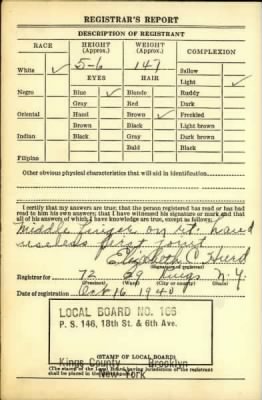 REGISTRAR'S REPORT
DESCRIPTION OF REGISTRANT
RACE HEIGHT (Approx.) WEIGHT (Approx.) COMPLEXION
White ✓ 5-6 147 Sallow
EYES HAIR Light ✓
Negro Blue ✓ Blonde Ruddy
Gray Red Dark
Oriental Hazel Brown ✓ Freckled
Brown Black Light brown
Indian Black Gray Dark brown
Bald Black
Filipino
Other obvious physical characteristics that will aid in identification
I certify that my answers are true; that the person registered has read or has had
read to him his own answers; that I have witnessed his signature or mark and that
all of his answers of which I have knowledge are true, except as follows:
Middle finger on rt. hand
useless first joint
Elizabeth C.
(Signature of registrar)
Registrar for 72 29 Kings N.Y.
(Precinct) (Ward) (City or county) (State)
Date of registration Oct 16 1940
LOCAL BOARD NO. 166
P. S. 146, 18th St. & 6th Ave.
Kings County Brooklyn
New York
(STAMP OF LOCAL BOARD)
(The stamp of the Local Board having jurisdiction of the registrant
shall be placed in the